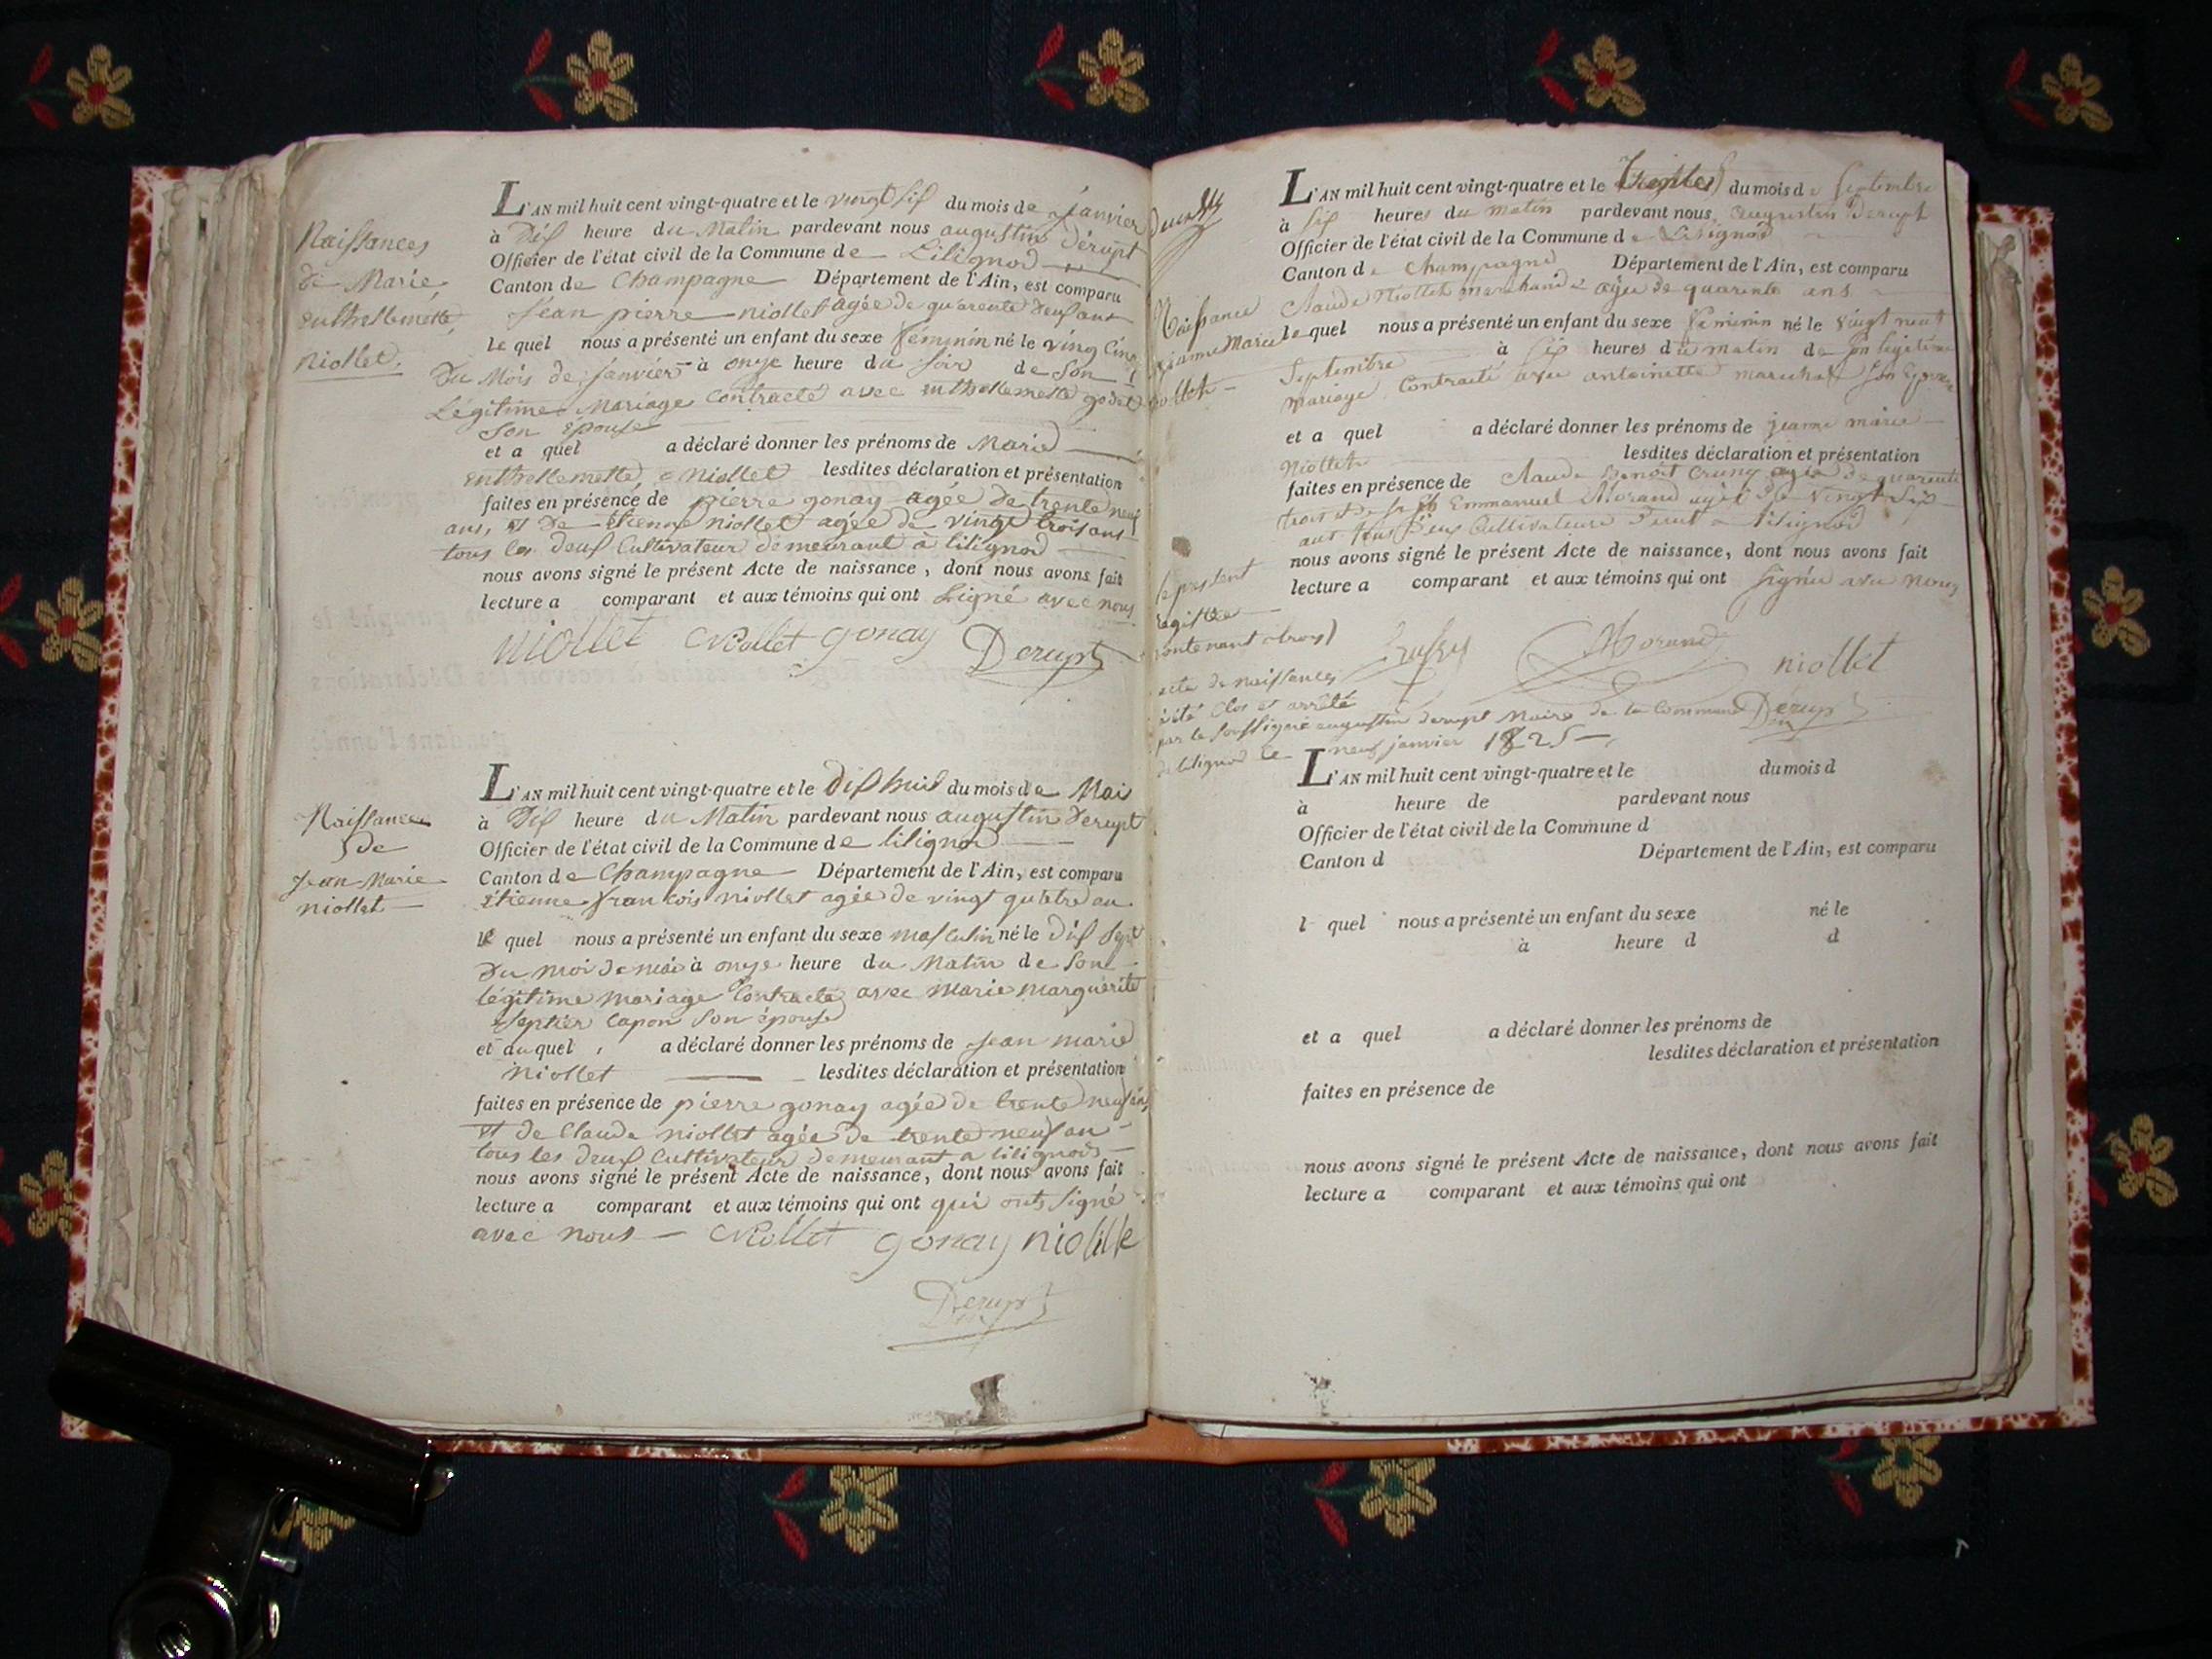 Naissances
de Marie
enthellemette
niollet.
L'AN mil huit cent vingt-quatre et le vingt six du mois de janvier
à Dix heure du Matin pardevant nous augustin Dérupt
Officier de l'état civil de la Commune de Lilignod
Canton de Champagne Département de l'Ain, est comparu
jean pierre niollet agée de quarente deux ans
le quel nous a présenté un enfant du sexe féminin né le ving cinq
du Mois de janvier à onze heure du soir de son
Légitime Mariage Contracté avec enthellemette godet
son épouse
et a quel a déclaré donner les prénoms de Marie
enthellemette niollet lesdites déclaration et présentation
faites en présence de pierre gonay agée de trente neuf
ans, et de étienne niollet agée de vingt trois ans
tous les deux Cultivateur demeurant à lilignod
nous avons signé le présent Acte de naissance, dont nous avons fait
lecture a comparant et aux témoins qui ont signé avec nous
niollet Niollet gonay Derupt
Naissances
de
Jean Marie
niollet
L'AN mil huit cent vingt-quatre et le dix huit du mois de Mai
à Dix heure du Matin pardevant nous augustin Derupt
Officier de l'état civil de la Commune de lilignod
Canton de Champagne Département de l'Ain, est comparu
étienne françois niollet agée de vingt quatre an
le quel nous a présenté un enfant du sexe masculin né le dix sept
du moi de mai à onze heure du Matin de son
légitime mariage Contracté avec Marie marguerite
septier Capon son épouse
et auquel a déclaré donner les prénoms de jean marie
Niollet lesdites déclaration et présentation
faites en présence de pierre gonay agée de trente neuf ans
et de Claude niollet agée de trente neuf an
tous les deux Cultivateur demeurant a lilignod
nous avons signé le présent Acte de naissance, dont nous avons fait
lecture a comparant et aux témoins qui ont qui onts signé
avec nous Niollet gonay niollet
Derupt
L'AN mil huit cent vingt-quatre et le du mois de Septembre
à six heures du matin pardevant nous augustin Derupt
Officier de l'état civil de la Commune de Lilignod
Canton de Champagne Département de l'Ain, est comparu
Claude Niollet marchand agée de quarente ans
Naissance
jeanne Marie
niollet
le quel nous a présenté un enfant du sexe féminin né le vingt neuf
Septembre à six heures du matin de son légitime
mariage Contracté avec antoinette son épouse
et a quel a déclaré donner les prénoms de jeanne marie
Niollet lesdites déclaration et présentation
faites en présence de Claude Benoit agée de quarente
trois et de Emmanuel Morand agée de Vingt six
ans tous deux Cultivateurs à lilignod
nous avons signé le présent Acte de naissance, dont nous avons fait
lecture a comparant et aux témoins qui ont signée avec nous
Morand niollet
Dérupt
le présent
registre
contenant trois
acte de naissances
a été Clos et arrêté
par le soussigné augustin derupt Maire de la Commune
de lilignod le neuf janvier 1825
L'AN mil huit cent vingt-quatre et le du mois d
à heure de pardevant nous
Officier de l'état civil de la Commune d
Canton d Département de l'Ain, est comparu
l quel nous a présenté un enfant du sexe né le
à heure d d
et a quel a déclaré donner les prénoms de
lesdites déclaration et présentation
faites en présence de
nous avons signé le présent Acte de naissance, dont nous avons fait
lecture a comparant et aux témoins qui ont